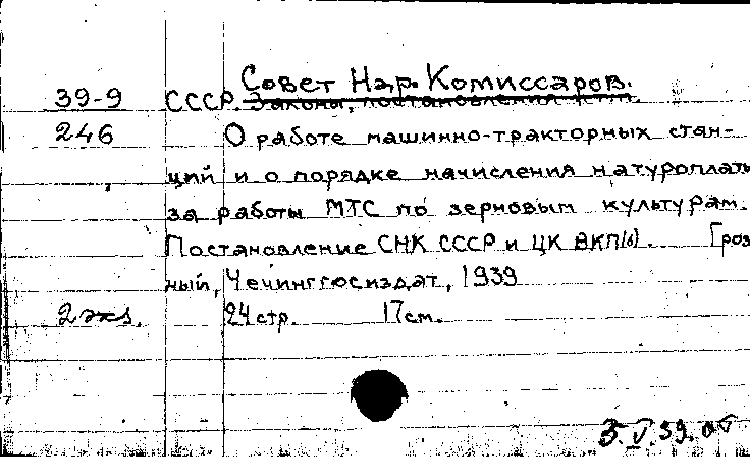 Совет Нар. Комиссаров.
39-9 СССР. Законы, постановления и т.п.
246 О работе машинно-тракторных стан-
ций и о порядке начисления натуроплаты
за работы МТС по зерновым культурам.
Постановление СНК СССР и ЦК ВКП(б). Гроз
ный, Чечингосиздат, 1939
2 экз. 24 стр. 17 см.
5.V.39.